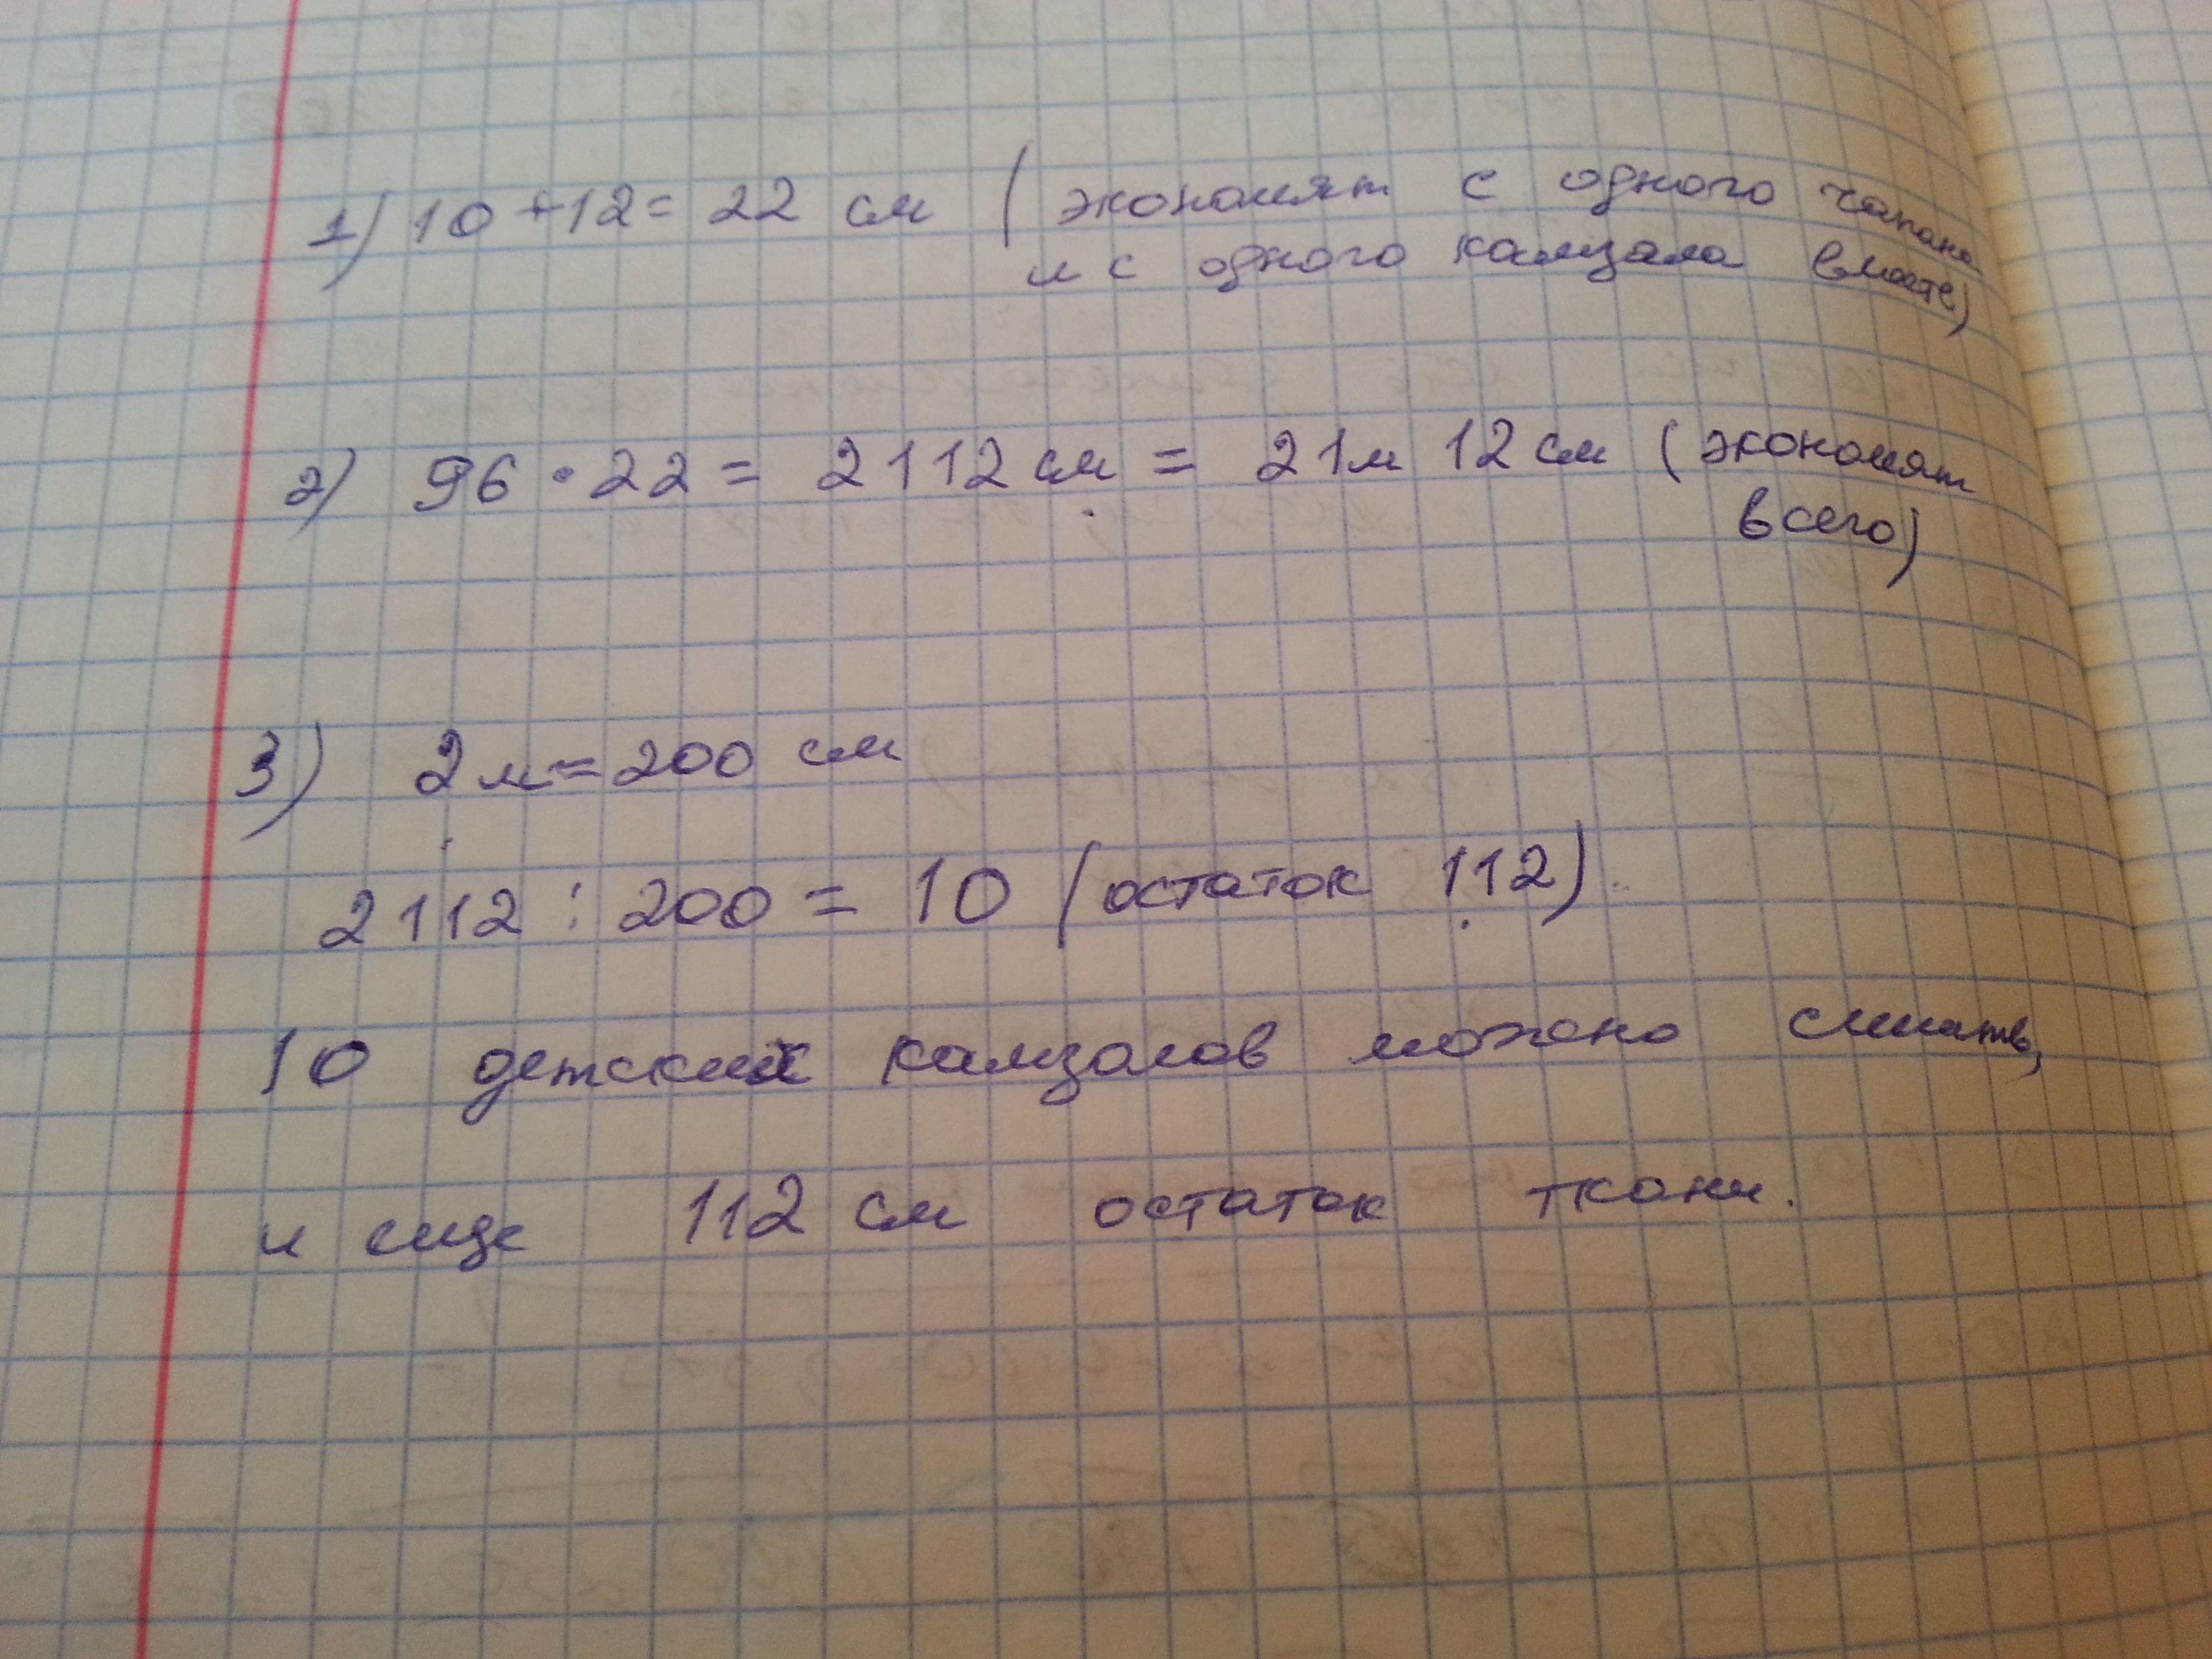 1) 10 + 12 = 22 см (экономят с одного чапана
и с одного камзола вместе)
2) 96 • 22 = 2112 см = 21м 12 см (экономят
всего)
3) 2 м = 200 см
2112 : 200 = 10 (остаток 112)
10 детских камзолов можно сшить,
и еще 112 см остаток ткани.